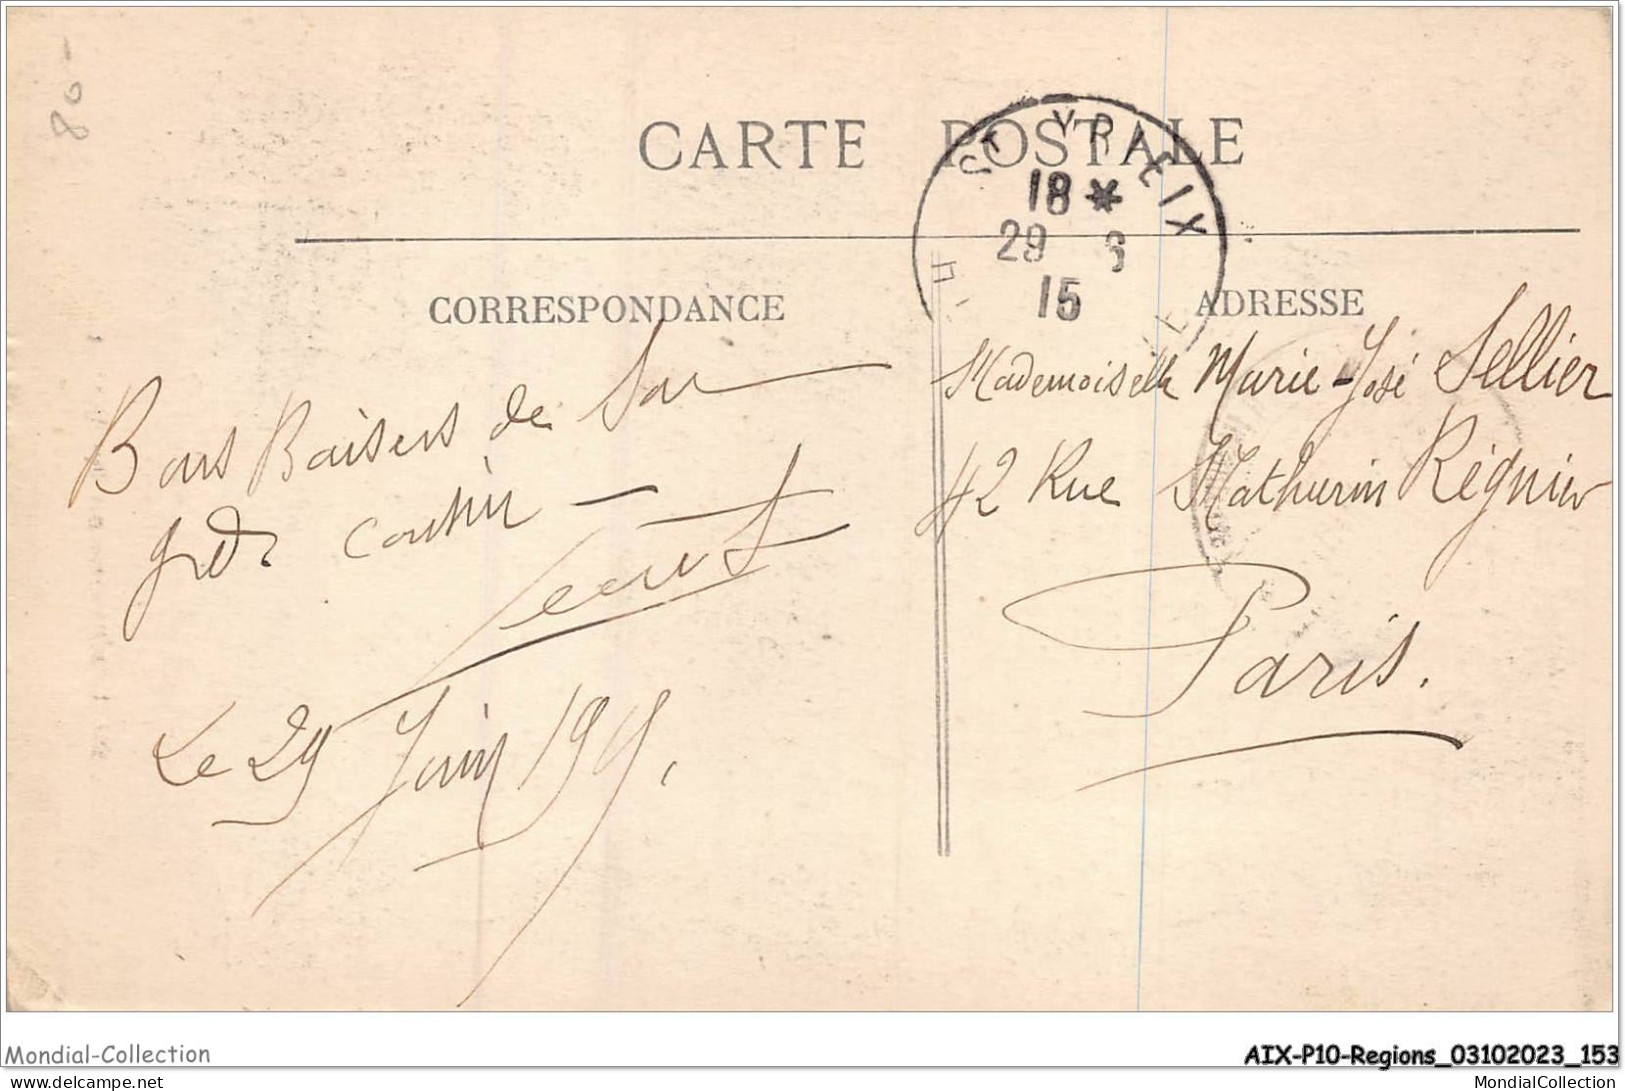 80-
CARTE POSTALE
ST YRIEIX
18*
29 6
15
CORRESPONDANCE
ADRESSE
Bons Baisers de Son
grd cousin
Mademoiselle Marie-José Sellier
42 Rue Mathurin Régnier
Paris.
Le 29 Juin 1915.
Mondial-Collection
AIX-P10-Regions_03102023_153
www.delcampe.net
MondialCollection